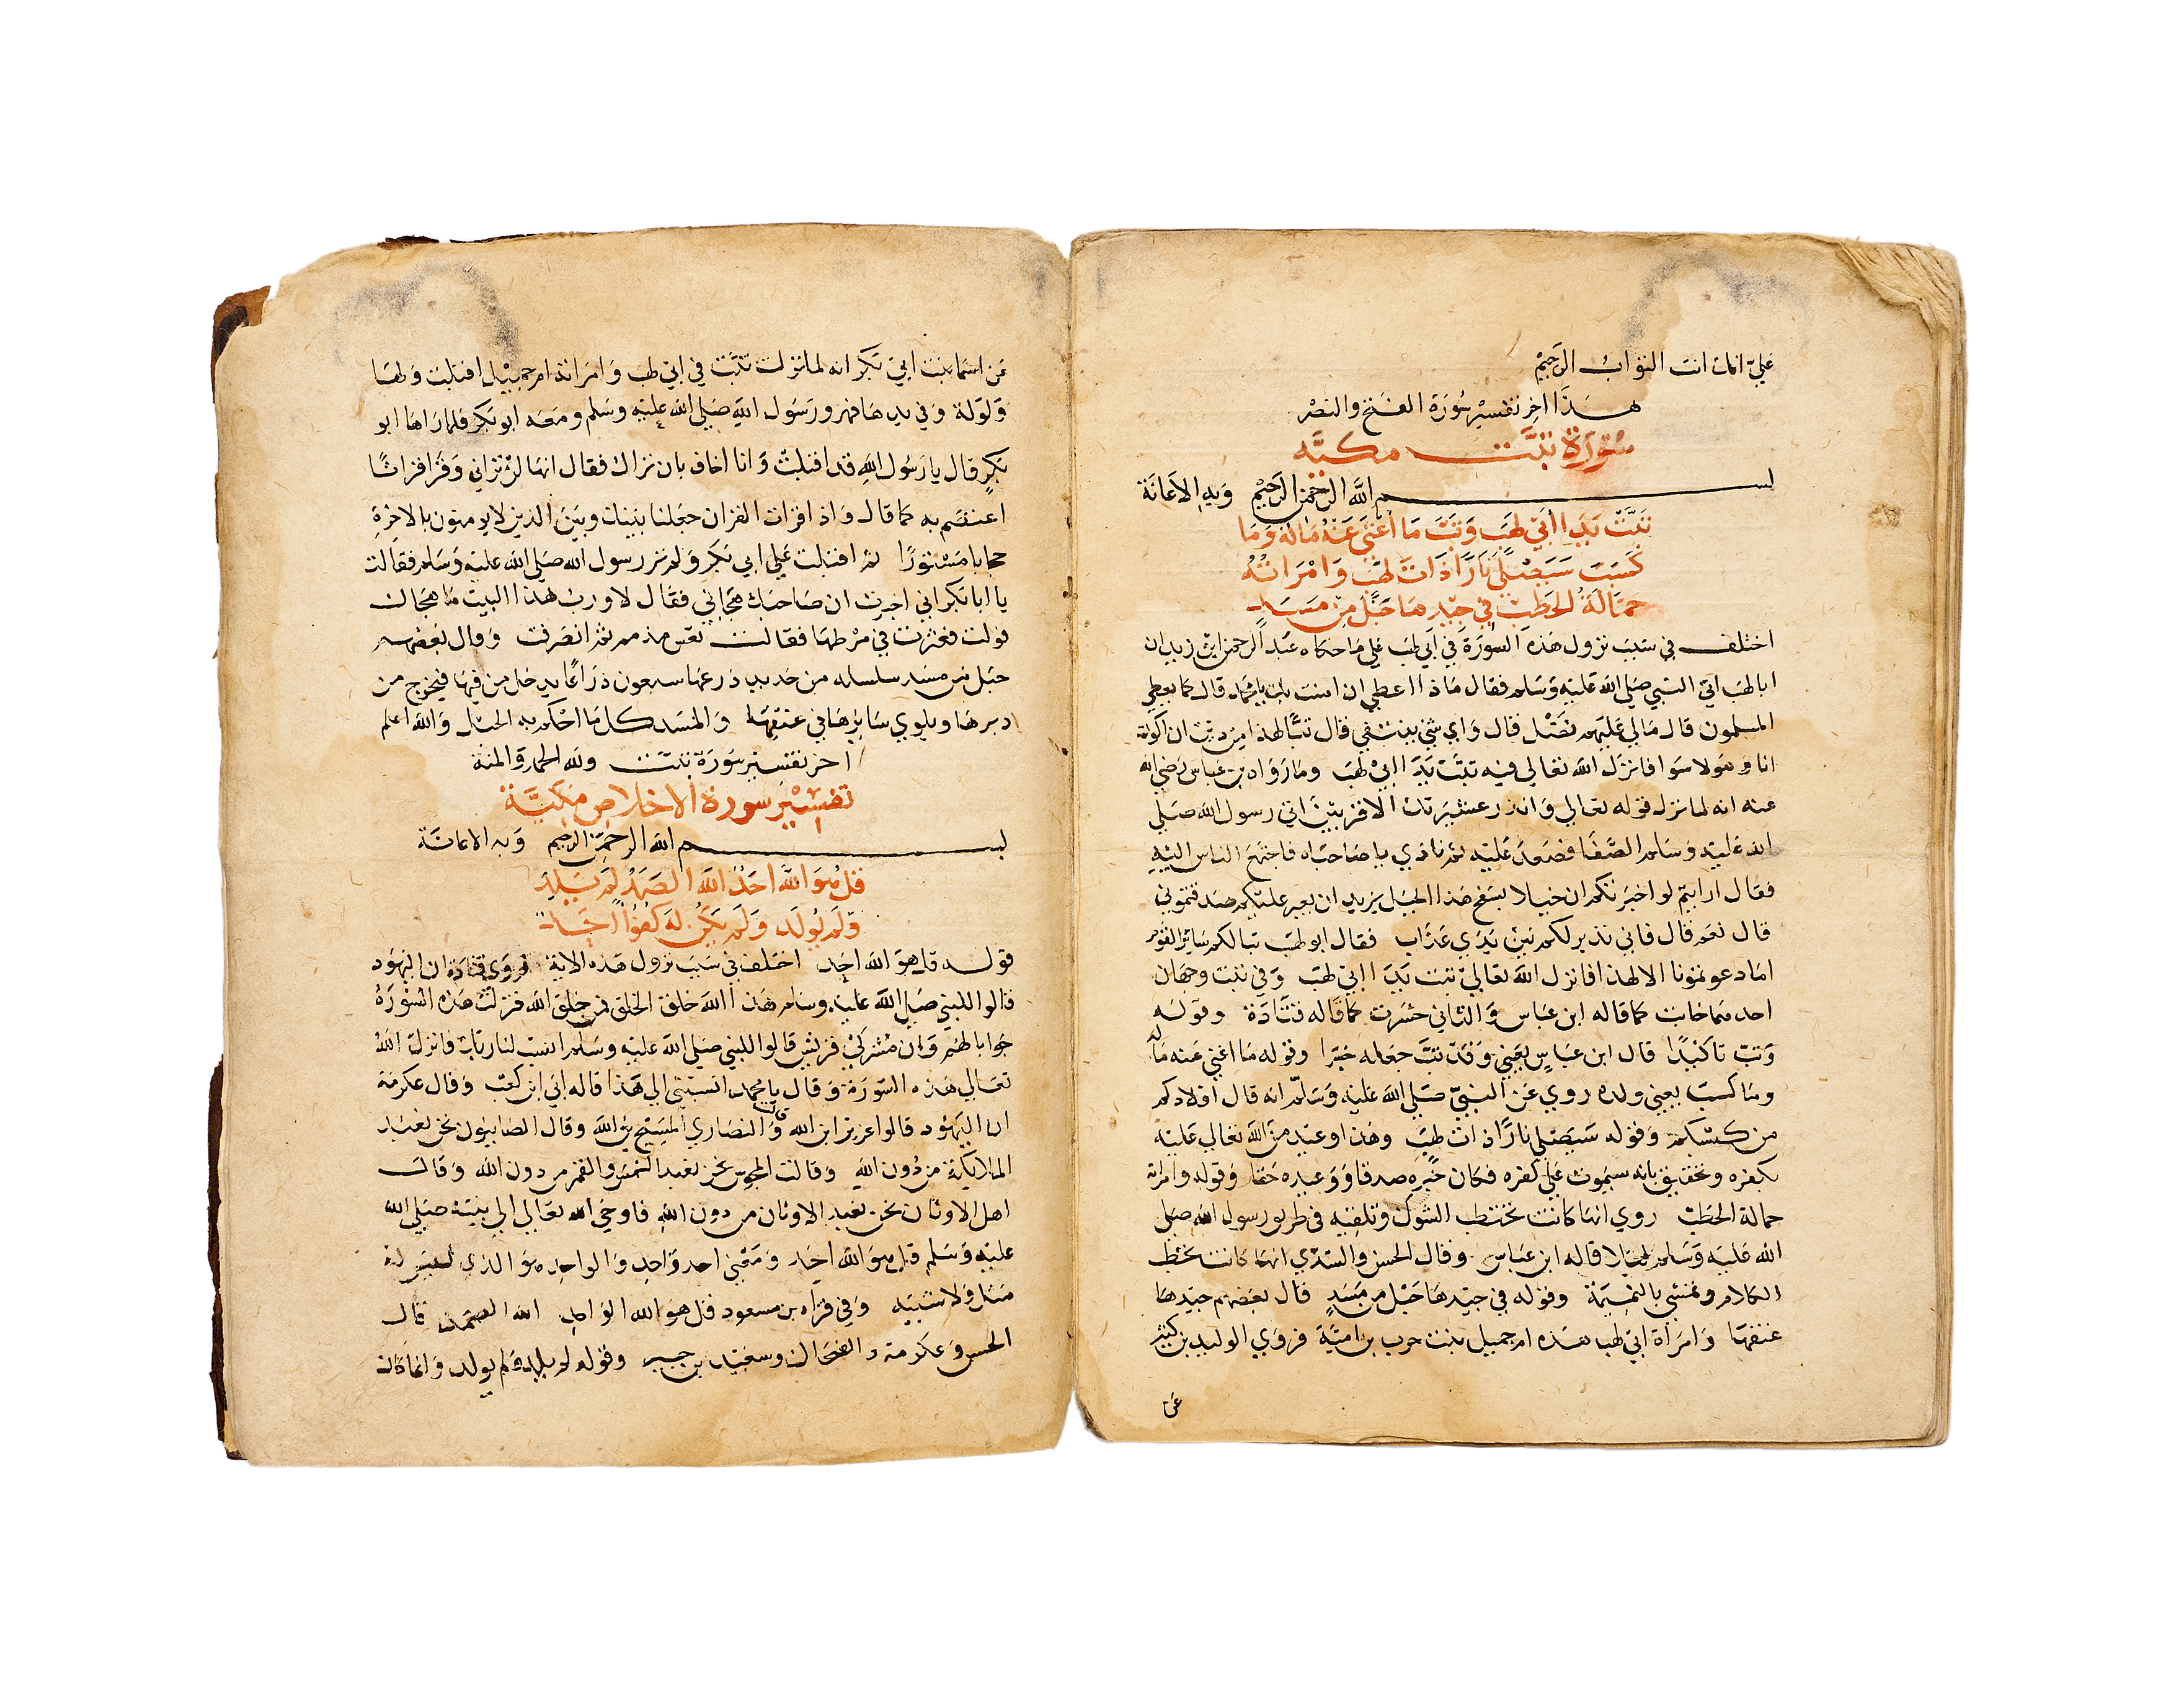 علي انك انت التواب الرحيم
هذا اخر تفسير سورة الفتح والنصر
سورة تبت مكيه
بسم الله الرحمن الرحيم وبه الاعانة
تبت يدا ابي لهب وتب ما اغنى عنه ماله وما
كسب سيصلى نارا ذات لهب وامراته
حمالة الحطب في جيدها حبل من مسد
اختلف في سبب نزول هذه السورة في ابي لهب علي ما حكاه عبد الرحمن ابن زيد ان
ابا لهب اتي النبي صلي الله عليه وسلم فقال ماذا اعطي ان امنت بك يا محمد قال كما يعطي
المسلمون قال مالي عليهم فضل قال واي شي تبتغي قال تبا لهذا من دين ان اكون
انا وهولا سوا فانزل الله تعالي فيه تبت يدا ابي لهب وما رواه بن عباس رضي الله
عنه انه لما نزل قوله تعالي وانذر عشيرتك الاقربين اتي رسول الله صلي
الله عليه وسلم الصفا فصعد عليه ثم نادي يا صاحباه فاجتمع الناس اليه
فقال ارايتم لو اخبرتكم ان خيلا بسفح هذا الجبل يريد ان يعير عليكم صدقتموني
قال نعم قال فاني نذير لكم بين يدي عذاب فقال ابو لهب تبا لكم ساير القوم
اما دعوتمونا الا لهذا فانزل الله تعالي تبت يدا ابي لهب وفي تبت وجهان
احدهما خابت كما قاله ابن عباس والثاني خسرت كما قاله قتادة وقوله
وتب تاكيدا قال ابن عباس يعني وقد تب جعله خبرا وقوله ما اغني عنه ماله
وما كسب يعني ولده روي عن النبي صلي الله عليه وسلم انه قال اولادكم
من كسبكم وقوله سيصلي نارا ذات لهب وهذا وعيد من الله تعالي عليه
بكفره وتحقيق بانه سيموت علي كفره فكان خبره صدقا ووعيده حقا وقوله وامراته
حمالة الحطب روي انها كانت تحتطب الشوك وتلقيه في طريق رسول الله صلي
الله عليه وسلم ليلا قاله ابن عباس وقال الحسن والسدي انها كانت تحطب
الكلام وتمشي بالنميمة وقوله في جيدها حبل من مسد قال بعضهم جيدها
عنقها وامراة ابي لهب هذه ام جميل بنت حرب بن امية فروي الوليد بن كثير
عن
عن اسما بنت ابي بكر انه لما نزلت تبت في ابي لهب وامراته ام جميل اقبلت ولها
ولولة وفي يدها فهر ورسول الله صلي الله عليه وسلم ومعه ابو بكر فلما راها ابو
بكر قال يا رسول الله قد اقبلت وانا اخاف بان تراك فقال انها لن تراني وقرا قرانا
اعتصم به كما قال واذا قرات القران جعلنا بينك وبين الذين لا يومنون بالاخرة
حجابا مستورا ثم اقبلت علي ابي بكر ولم تر رسول الله صلي الله عليه وسلم فقالت
يا ابا بكر اني اخبرت ان صاحبك هجاني فقال لا ورب هذا البيت ما هجاك
فولت فعثرت في مرطها فقالت تعس مذمم ثم انصرفت وقال بعضهم
حبل من مسد سلسله من حديد ذرعها سبعون ذراعا يدخل من فيها فيخرج من
دبرها ويلوي سايرها في عنقها والمسد كل ما احكم به الحبل والله اعلم
اخر تفسير سورة تبت ولله الحمد والمنة
تفسير سورة الاخلاص مكية
بسم الله الرحمن الرحيم وبه الاعانة
قل هو الله احد الله الصمد لم يلد
ولم يولد ولم يكن له كفوا احد
قوله قل هو الله احد اختلف في سبب نزول هذه الاية فروي قتادة ان اليهود
قالوا للنبي صلي الله عليه وسلم هذا الله خلق الخلق فمن خلق الله فنزلت هذه السورة
جوابا لهم وان مشركي قريش قالوا للنبي صلي الله عليه وسلم انسب لنا ربك فانزل الله
تعالي هذه السورة وقال يا محمد انسبني الي هذا قاله ابي ابن كعب وقال عكرمة
ان اليهود قالوا عزير ابن الله وقالت النصاري المسيح بن الله وقال الصابيون نحن نعبد
الملايكة من دون الله وقالت المجوس نحن نعبد الشمس والقمر من دون الله وقالت
اهل الاوثان نحن نعبد الاوثان من دون الله فاوحي الله تعالي الي نبيه صلي الله
عليه وسلم قل هو الله احد ومعني احد واحد والواحد هو الذي ليس له
مثل ولا شبيه وفي قراه بن مسعود قل هو الله الواحد الله الصمد قال
الحسن وعكرمة والضحاك وسعيد بن جبير وقوله لم يلد ولم يولد وانما كان